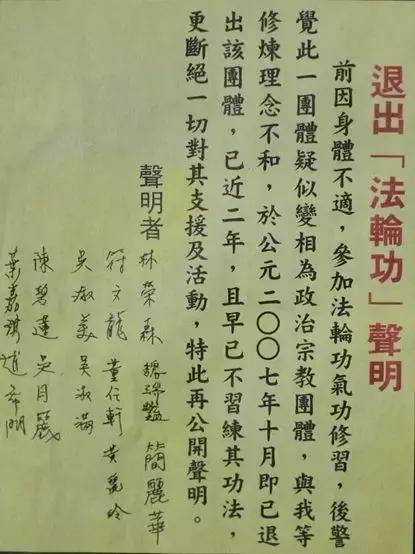 退出「法輪功」聲明
前因身體不適，參加法輪功氣功修習，後警
覺此一團體疑似變相為政治宗教團體，與我等
修煉理念不和，於公元二〇〇七年十月即已退
出該團體，已近二年，且早已不習練其功法，
更斷絕一切對其支援及活動，特此再公開聲明。
聲明者 林榮森 簡麗華
符文龍 黃麗玲
吳淑美 吳淑滿
陳碧蓮 吳月
葉嘉琪 趙希明